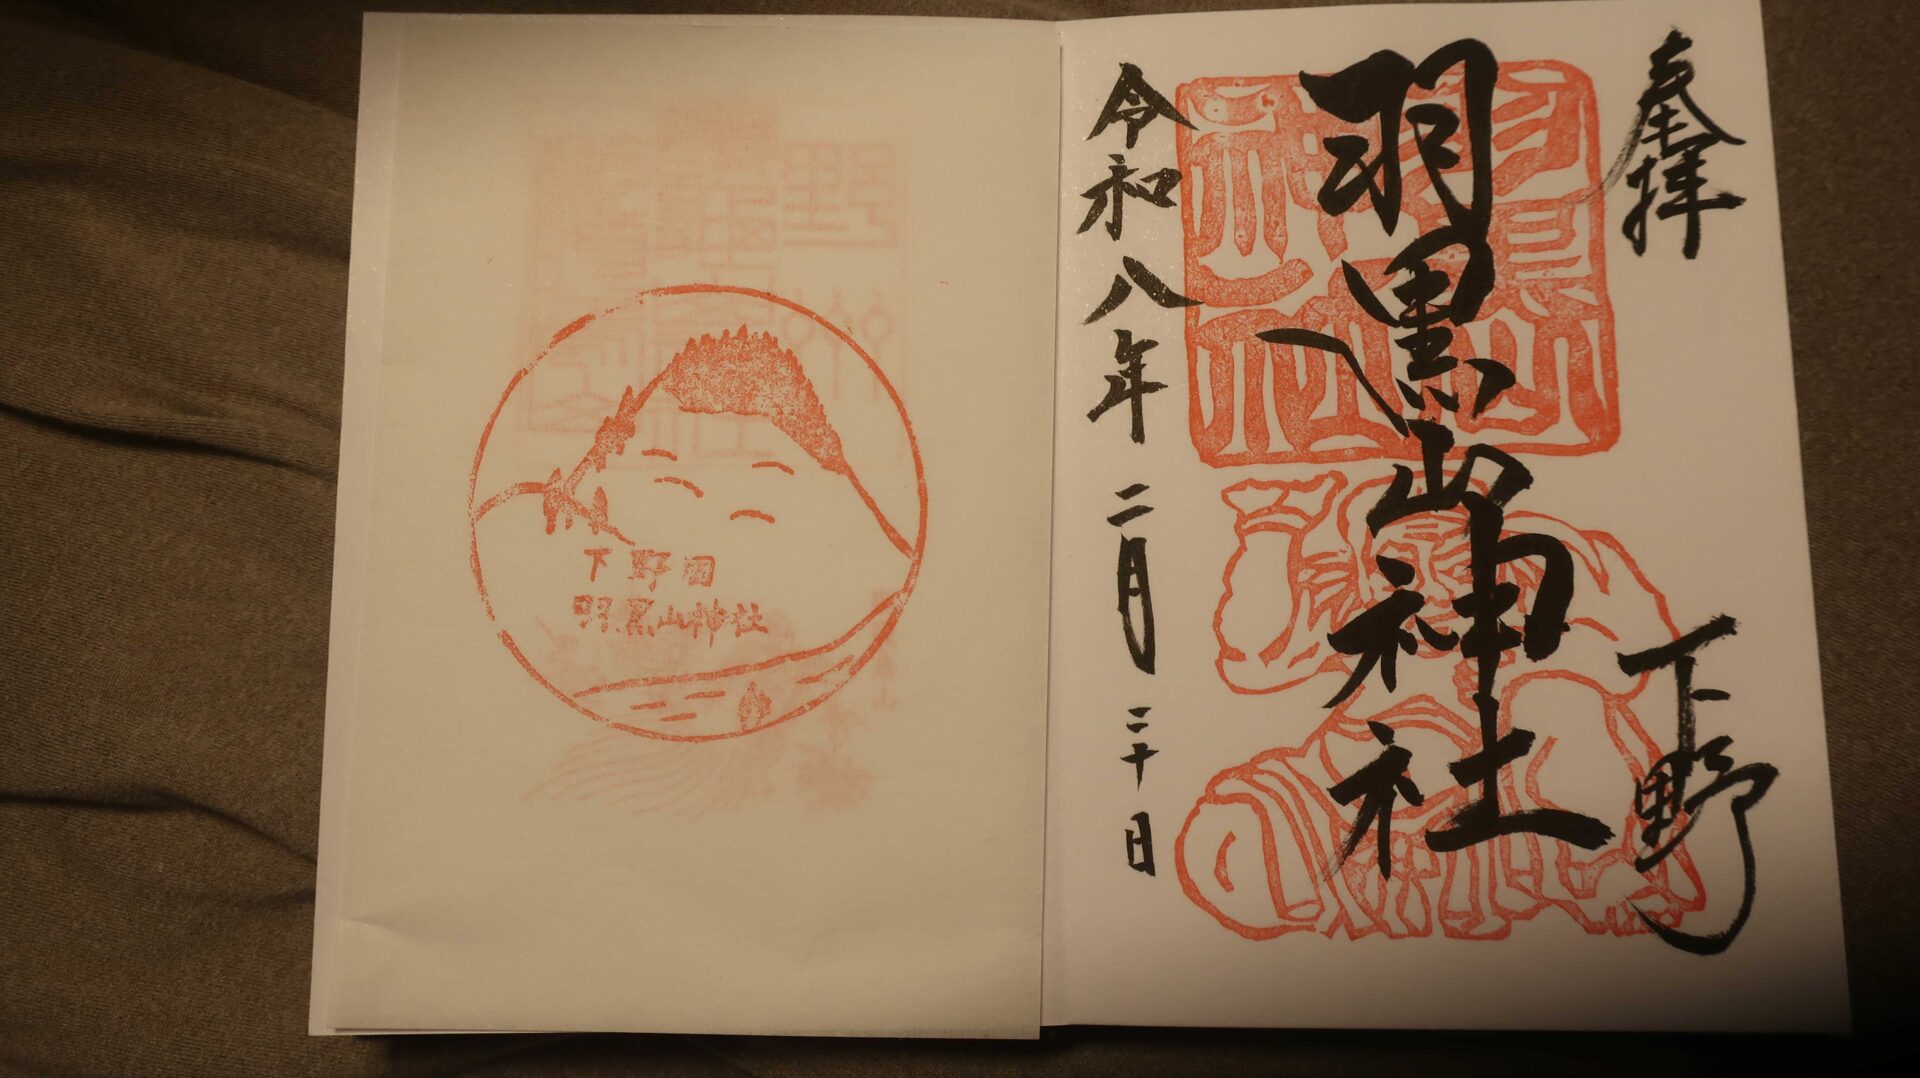 奉拝
下野
羽黒山神社
令和八年二月二十日
下野国
羽黒山神社